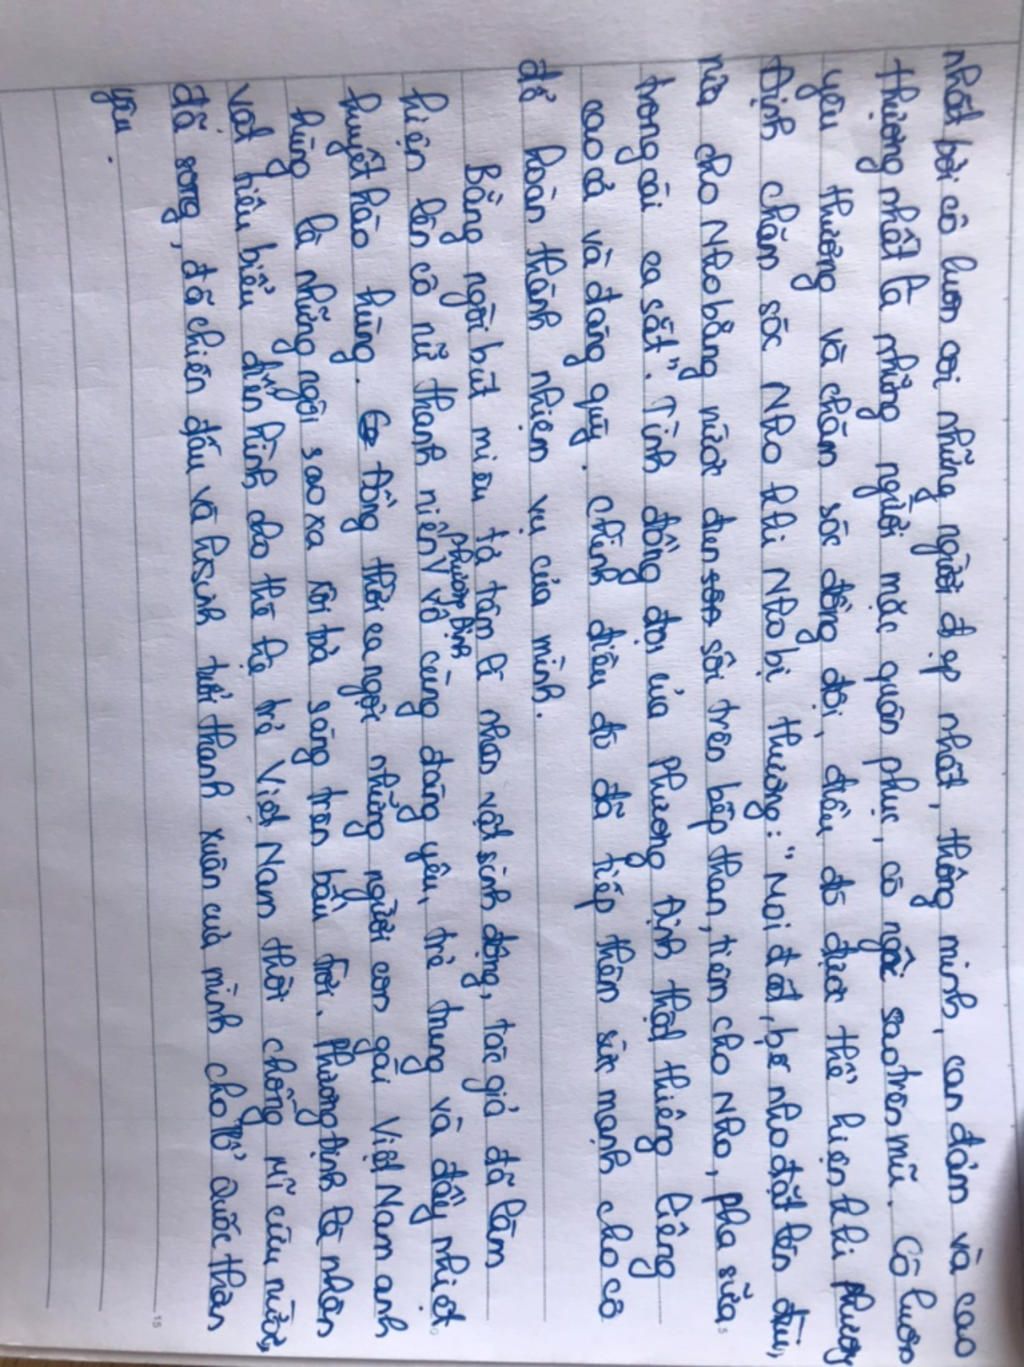 nhất bởi cô luon coi những người đẹp nhất, thông minh, can đảm và cao
thượng nhất là những người mặc quân phục, có ngôi sao trên mũ. Cô luôn
yêu thương và chăm sóc đồng đội, điều đó được thể hiện khi Phương
Định chăm sóc Nho khi Nho bị thương: "Moi đất, bế nho đặt lên đùi,
rửa cho Nho bằng nước đun sôi trên bếp than, tiêm cho Nho, pha sữa
trong cái ca sắt". Tình đồng đội của Phương Định thật thiêng liêng
cao cả và đáng quý. chính điều đó đã tiếp thêm sức mạnh cho cô
để hoàn thành nhiệm vụ của mình.
Bằng ngòi bút miêu tả tâm lí nhân vật sinh động, tác giả đã làm
hiện lên cô nữ thanh niên Phương Định vô cùng đáng yêu, trẻ trung và đầy nhiệt
huyết hào hùng. Đồng thời ca ngợi những người con gái Việt Nam anh
hùng là những ngôi sao xa xôi toả sáng trên bầu trời. Phương Định là nhân
vật tiêu biểu, điển hình cho thế hệ trẻ Việt Nam thời chống Mĩ cứu nước,
đã sống, đã chiến đấu và hi sinh tuổi thanh xuân của mình cho tổ quốc thân
yêu.
15